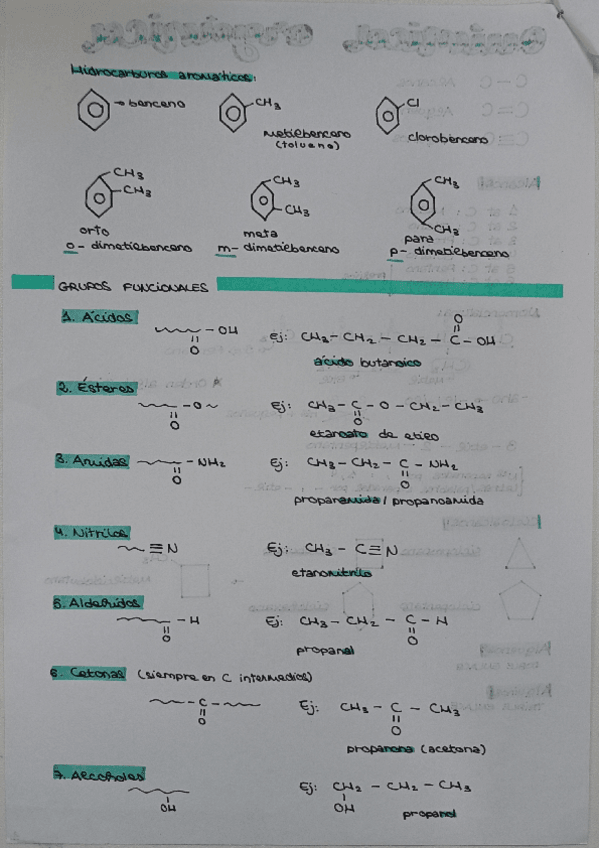 Hidrocarburos aromáticos:
→ benceno
CH3
metilbenceno
(tolueno)
Cl
clorobenceno
CH3
CH3
orto
o- dimetilbenceno
CH3
CH3
meta
m- dimetilbenceno
CH3
CH3
para
p- dimetilbenceno
GRUPOS FUNCIONALES
1. Ácidos
- OH
O
Ej: CH3 - CH2 - CH2 - C - OH
O
ácido butanoico
2. Ésteres
- O ~
O
Ej: CH3 - C - O - CH2 - CH3
O
etanoato de etilo
3. Amidas
- NH2
O
Ej: CH3 - CH2 - C - NH2
O
propanamida / propanoamida
4. Nitrilos
≡ N
Ej: CH3 - C ≡ N
etanonitrilo
5. Aldehidos
- H
O
Ej: CH3 - CH2 - C - H
O
propanal
6. Cetonas (siempre en C intermedios)
- C -
O
Ej: CH3 - C - CH3
O
propanona (acetona)
7. Alcoholes
OH
Ej: CH2 - CH2 - CH3
OH
propanol